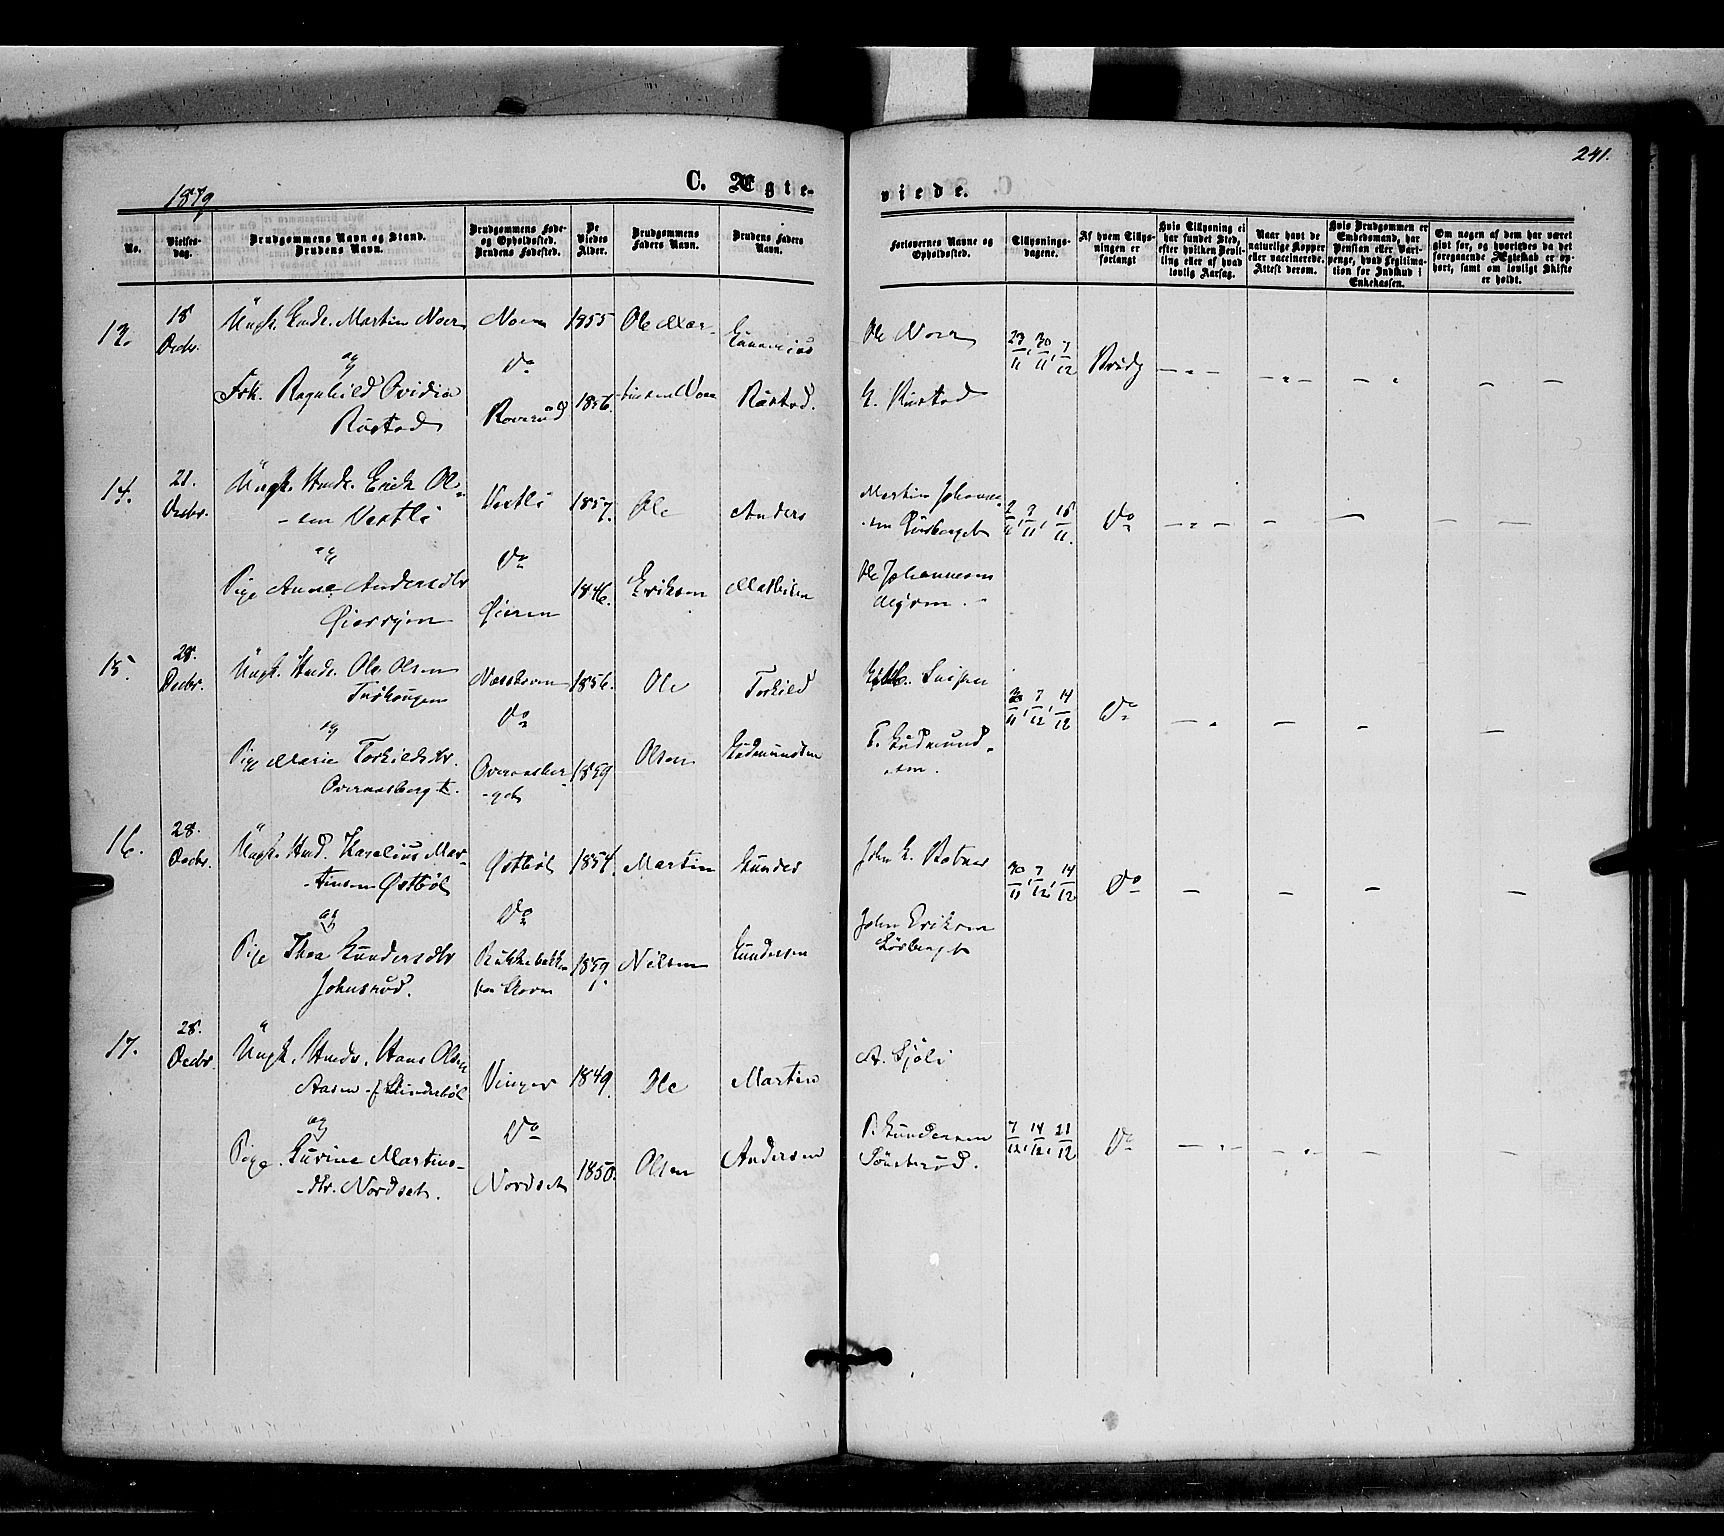 241.
1879
C. Ægte-
viede.
No.
Vielses-
dag.
Brudgommens Navn og Stand.
Brudens Navn.
Brudgommens Føde-
og Opholdssted.
Brudens Fødested.
De
Viedes
Alder.
Brudgommens
Faders Navn.
Brudens Faders
Navn.
Forlovernes Navne og
Opholdssted.
Tillysnings-
dagene.
Af hvem Tillys-
ningen er
forlangt
Hvis Tillysning ei
har fundet Sted,
efter hvilken Bevil-
ling eller af hvad
lovlig Aarsag.
Naar havt de
naturlige Kopper
eller vaccinerede.
Attest derom.
Hvis Brudgommen er
Embedsmand, har
Pension eller Vart-
penge, hvad Legitima-
tion for Indskud i
Enkekassen.
Om nogen af dem har været
givt før, og hvorledes da det
foregaaende Ægteskab er op-
hørt, samt om lovligt Skifte
er holdt.
13.
18
Decbr.
Ungk. Martin Noer
Noer
1855
Ole Mar-
Ole Noer
23/11, 30/11, 7/12
Brudg
og
Do
Frk. Ragnhild Ovidia
Rustad
Roverud
1856.
Rustad.
G. Rustad
14.
21.
Decbr.
Ungk. Erik Ol-
-sen Vestli
Vestli
1857.
Ole
Anders
Martin Johannes-
2/11, 9/11, 16/11.
Do
og
Do
Pige Anne Andersdtr
Øieren
1846.
Eriksen
Mathisen
Ole Johannesen
15.
28.
Decbr.
Ungk. Ole Olsen
1856.
Ole
Torkild
30/11, 7/12, 14/12
Do
og
Do
Pige Marie Torkildsdtr.
Overaasberget.
Overaasber-
-get
1859
Olsen
Gudmundsen
T. Gudmund-
-sen.
16.
28.
Decbr.
Ungk. Karelius Mar-
-tinsen Østbøl
Østbøl
1854.
Martin
Gunder
John G.
30/11, 7/12, 14/12
Do
og
Do
Pige Thea Gundersdtr
Johnsrud.
1859.
Nilsen
Gundersen
John Eriksen
17.
28.
Decbr.
Ungk. Hans Olsen
Aasen
Vinger
1849.
Ole
Martin
A. Sjøli
og
Do
Pige Gurine Martins-
-dtr. Nordset.
Nordset
1850.
Olsen
Andersen
P. Gundersen
7/12, 14/12, 21/12
Do